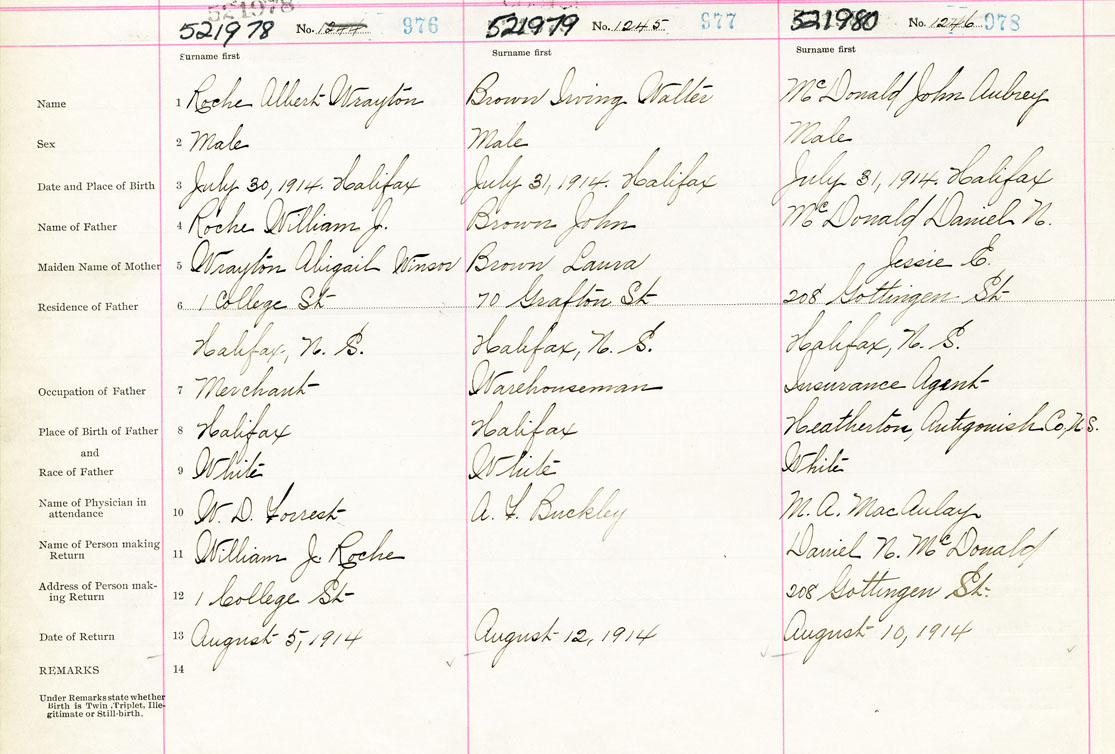 521978
521978 No. 1244 976 521979 No. 1245 977 521980 No. 1246 978
Surname first Surname first Surname first
Name 1 Roche Albert Wrayton Brown Irving Walter McDonald John Aubrey
Sex 2 Male Male Male
Date and Place of Birth 3 July 30, 1914. Halifax July 31, 1914. Halifax July 31, 1914. Halifax
Name of Father 4 Roche William J. Brown John McDonald Daniel N.
Maiden Name of Mother 5 Wrayton Abigail Winsor Brown Laura Jessie E.
Residence of Father 6 1 College St 70 Grafton St 208 Gottingen St
Halifax, N. S. Halifax, N. S. Halifax, N. S.
Occupation of Father 7 Merchant Warehouseman Insurance Agent
Place of Birth of Father 8 Halifax Halifax Heatherton, Antigonish Co, N.S.
and
Race of Father 9 White White White
Name of Physician in
attendance 10 W. D. Forrest A. F. Buckley M. A. MacAulay
Name of Person making
Return 11 William J. Roche Daniel N. McDonald
Address of Person mak-
ing Return 12 1 College St 208 Gottingen St.
Date of Return 13 August 5, 1914 August 12, 1914 August 10, 1914
REMARKS 14
Under Remarks state whether
Birth is Twin, Triplet, Ille-
gitimate or Still-birth.